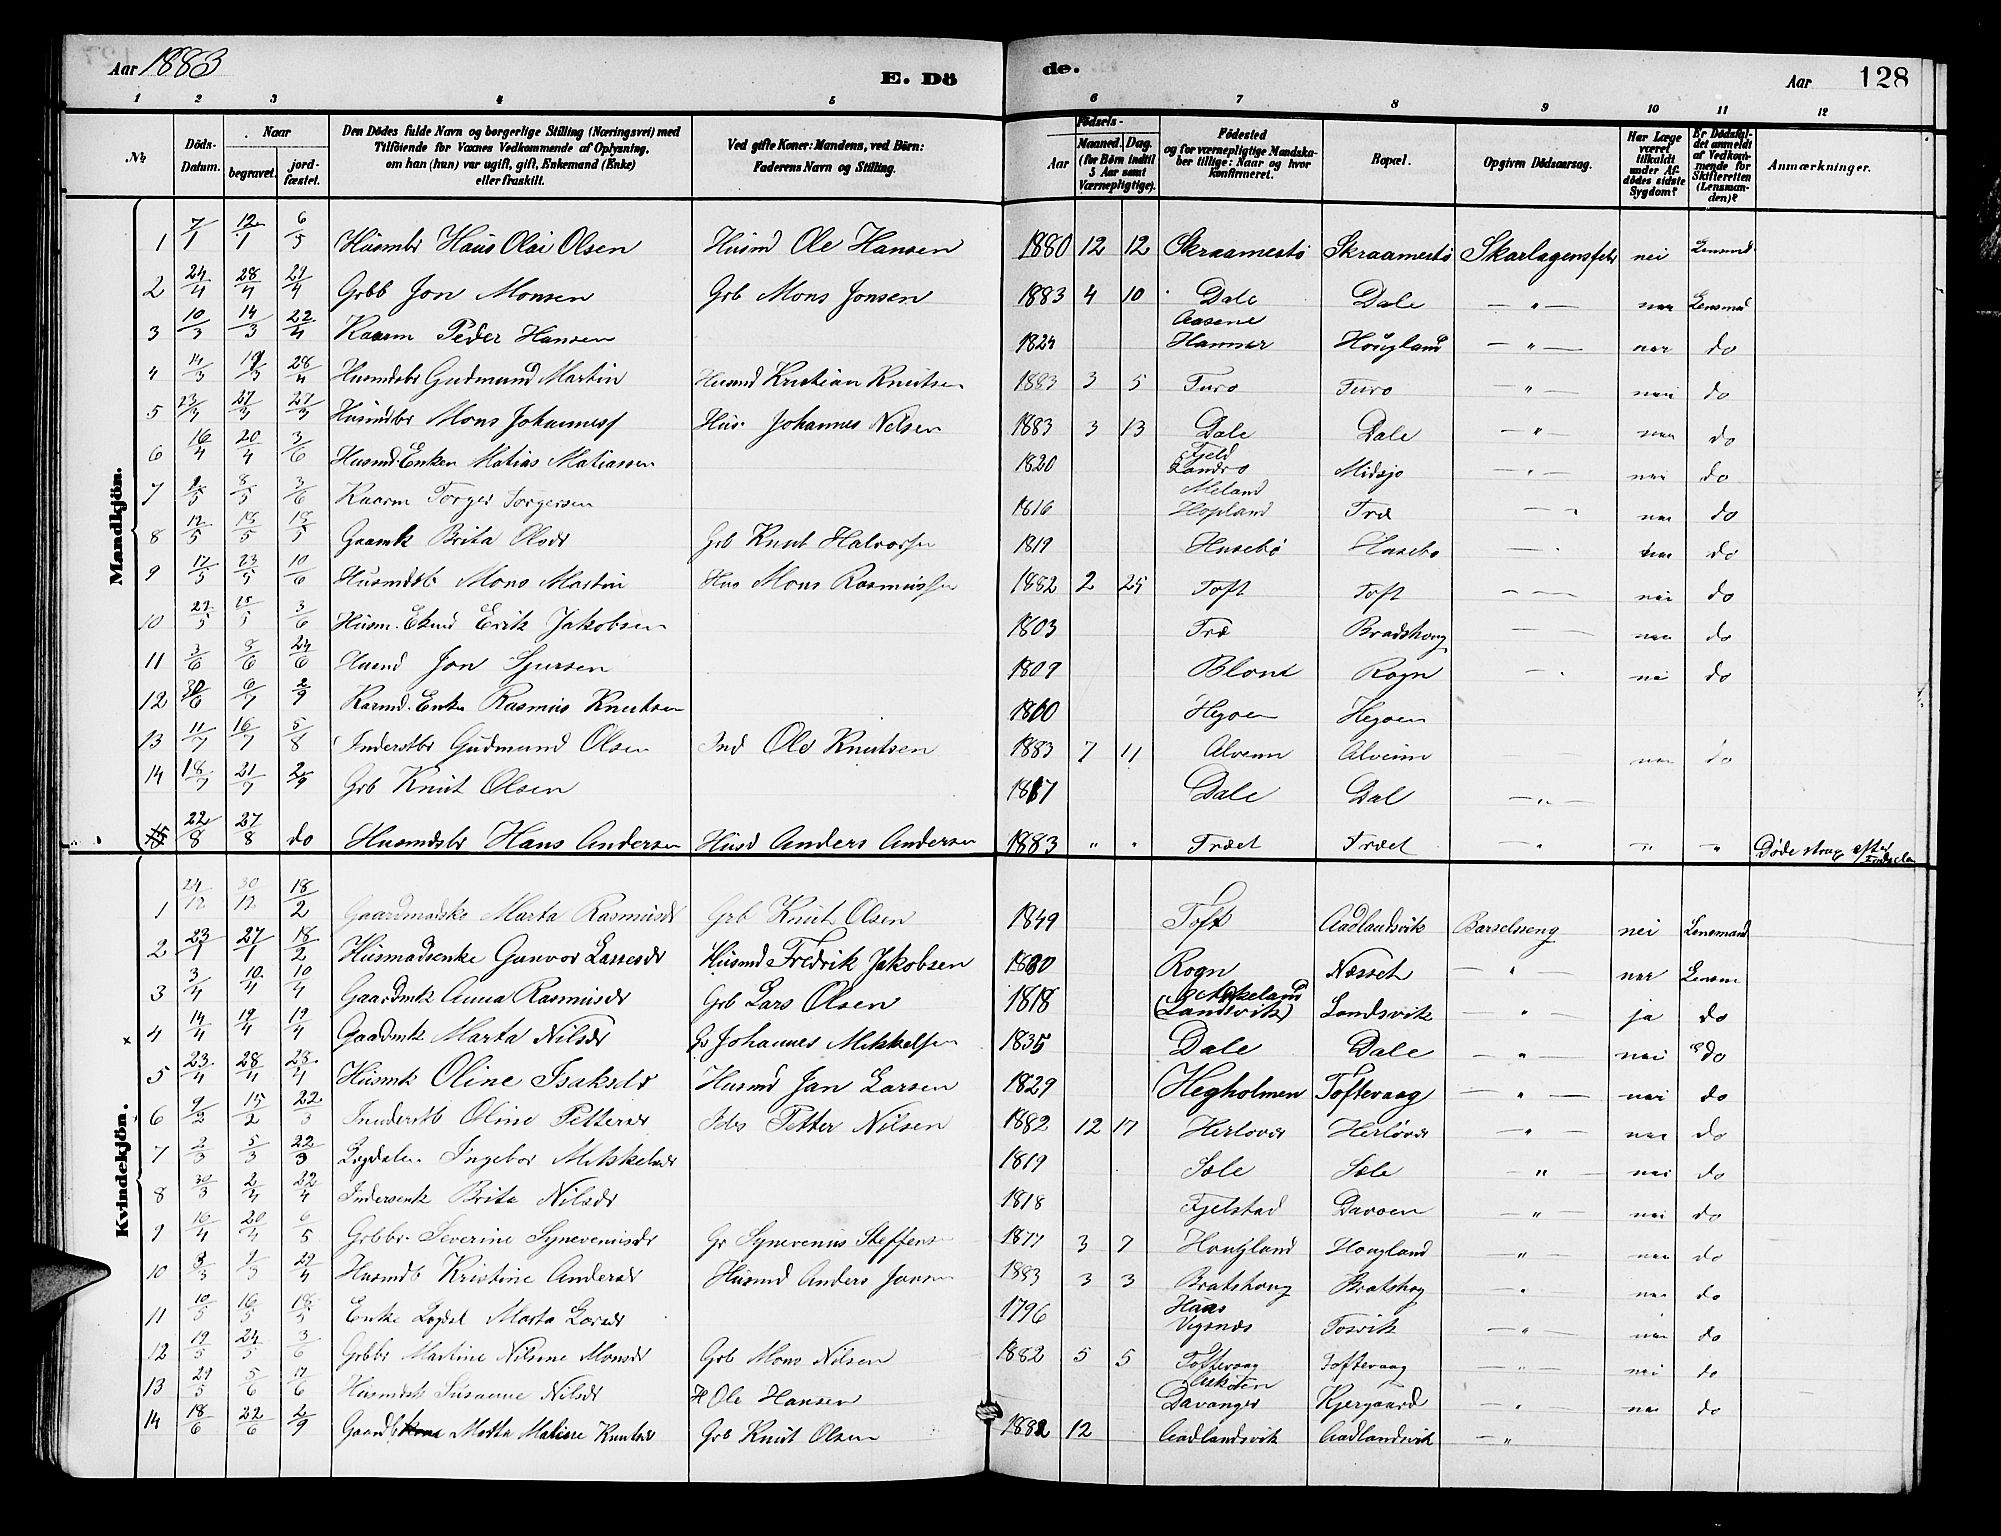 Aar 1883
E. Dö
de.
Aar 128
1 2 3 4 5 6 7 8 9 10 11 12
№ Döds-Datum. Naar begravet. jord-fæstet. Den Dödes fulde Navn og borgerlige Stilling (Næringsvei) med Tilföiende for Voxnes Vedkommende af Oplysning, om han (hun) var ugift, gift, Enkemand (Enke) eller fraskilt. Ved gifte Koner: Mandens, ved Börn: Faderens Navn og Stilling. Födsels- Aar Maaned. Dag. (for Börn indtil 5 Aar samt Værnepligtige). Födested og for værnepligtige Mandskaber tillige: Naar og hvor konfirmeret. Bopæl. Opgiven Dödsaarsag. Har Læge været tilkaldt under Afdödes sidste Sygdom? Er Dödsfaldet anmeldt af Vedkommende for Skifteretten (Lensmanden)? Anmærkninger.
Mandkjön.
1 7/1 12/1 6/5 Husmbr Hans Olai Olsen Husmd Ole Hansen 1880 12 12 Skraamestö Skraamestö Skarlagensfeber nei Lensmd
2 24/4 28/4 29/4 Grbb Jon Monsen Grb Mons Jonsen 1883 4 10 Dale Dale — " — nei Lensmd
3 10/3 14/3 22/4 Kaarm Peder Hansen 1824 Aasene Hammer Hougland — " — nei do
4 14/3 19/3 28/4 Husmdsbr Gudmund Martin Husmd Kristian Knutsen 1883 3 5 Turö Turo — " — nei do
5 23/3 27/3 27/3 Husmdbr Mons Johanness Hus. Johannes Nilsen 1883 3 13 Dale Dale — " — nei do
6 16/4 20/4 3/6 Husmd. Enkem Matias Matiassen 1820 Fjeld Landro Midsjo — " — nei do
7 2/5 8/5 3/6 Kaarm Torger Torgersen 1816 Meland Hopland Træ — " nei do
8 12/5 18/5 18/5 Gaamk Brita Olsdr Grb Knut Halvorsen 1819 Husebö Husebo — " nei do
9 17/5 23/5 10/6 Husmdsb Mons Martin Hus Mons Rasmussen 1882 2 25 Toft Toft — " — nei do
10 3/6 Husm. Ekmd Erik Jakobsen 1803 Træ Bradshoug — " — nei do
11 3/6 8/6 24/6 Husmd Jon Sjursen 1809 Blom Rogn — " nei do
12 30/6 6/7 2/9 Kaarmd. Enke Rasmus Knutsen 1810 Hegoen Hegoen
13 11/7 16/7 5/8 Inderstbr Gudmund Olsen Ind Ole Knutsen 1883 7 11 Alvenn Alveinn nei do
14 18/7 21/7 2/9 Grb Knut Olsen 1817 Dale Dal — " —
15 22/8 27/8 do Husmdsbr Hans Andersen Husd Anders Andersen 1883 " " Træet Træet — " — " " Døde strax efter Fødselen
Kvindekjön.
1 24/12 30/12 18/2 Gaardmadske Marta Rasmusdr Grb Knut Olsen 1849 Toft Aadlandsvik Barselseng nei Lensmand
2 23/1 27/1 18/2 Husmadsenke Gunvor Lassesdr Husmd Fredrik Jakobsen 1800 Rogn Næsset — " — nei Lensm
3 3/4 10/4 10/4 Gaardmk Anna Rasmusdr Grb Lars Olsen 1818 Mekeland (Landsvik) Landsvik — " — ja do
4 14/4 19/4 19/4 Gaardmk Marta Nilsdr Gr Johannes Mikkelsen 1835 Dale Dale — " — nei do
5 23/4 28/4 23/4 Husmk Oline Isaksdr Husmd Jan Larsen 1829 Hegholmen Toftevaag — " — nei do
6 9/2 15/2 22/3 Inderstb Oline Pettersdr Ides Petter Nilsen 1882 12 17 Herlover Herlöver — " — nei do
7 2/3 5/3 22/3 Legdslem Ingebor Mikkelsdr 1819 Sole Sole — " — nei do
8 30/3 2/4 22/4 Indersenk Brita Nilsdr 1818 Fjelstad Davoen — " — nei do
9 16/4 20/4 6/5 Grbbr. Severine Synevenusdr Gr Synevenus Steffens 1877 3 7 Hougland Hougland — " — nei do
10 3/3 9/3 29/4 Husmdb Kristine Andersdr Husmd Anders Jonsen 1883 3 3 Bratshoug Bratshog — " — nei do
11 10/5 16/5 18/5 Enke Legdsl Marta Larsdr 1796 Haus Vigsnes Tosvik — " — nei do
12 19/5 24/5 3/6 Grbbr Martine Nilsine Monsdr Grb Mons Nilsen 1882 5 5 Toftevaag Toftevaag — " — nei do
13 29/5 5/6 17/6 Husmdsk Susanne Nilsdr H Ole Hansen Askøen Davanger Kjergaard — " — nei do
14 18/6 22/6 2/9 Gaardb Marta Matisse Knutsdr Grb Knut Olsen 1882 12 Aadlandsvik Aadlandsvik — " —